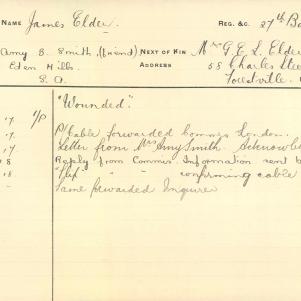 NAME James Elder. REG. &C. 27th Ba
Amy B. Smith, (friend) NEXT OF KIN Mrs G.E.L. Elder
Eden Hills ADDRESS 58 Charles Stee
S.A. Forestville.
"Wounded".
17. 1/P P/Cable forwarded Commrs London.
17 Letter from Mrs Amy Smith. Acknowled
18 Reply from Commrs. Information sent b
18 " " confirming cable
Same forwarded Inquirer